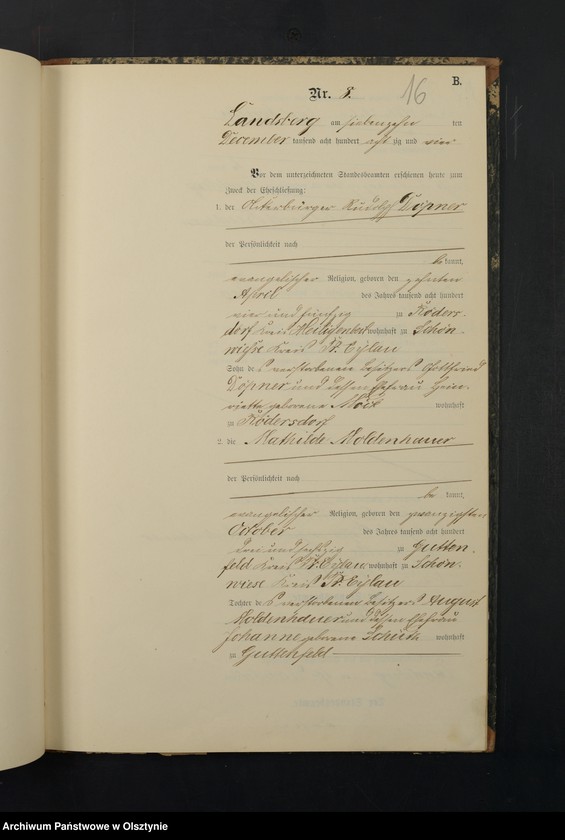 B.
16
Nr. 8.
Landsberg am siebenzehn ten
December tausend acht hundert acht zig und vier
Vor dem unterzeichneten Standesbeamten erschienen heute zum
Zweck der Eheschließung:
1. der Rudolf Döpner
der Persönlichkeit nach
be kannt,
evangelischer Religion, geboren den zehnten
April des Jahres tausend acht hundert
vier und fünfzig zu Röders-
dorf Kreis Heiligenbeil wohnhaft zu Schön-
wiese Kreis Pr. Eylau
Sohn des verstorbenen Besitzers Gottfried
Döpner und dessen Ehefrau Hein-
riette geborene wohnhaft
zu Rödersdorf
2. die Mathilde Moldenhauer
der Persönlichkeit nach
be kannt,
evangelischer Religion, geboren den zwanzigsten
October des Jahres tausend acht hundert
drei und sechszig zu Gutten-
feld Kreis Pr. Eylau wohnhaft zu Schön-
wiese Kreis Pr. Eylau
Tochter des verstorbenen Besitzers August
Moldenhauer und dessen Ehefrau
Johanne geborene Schuth wohnhaft
zu Guttenfeld
Archiwum Państwowe w Olsztynie